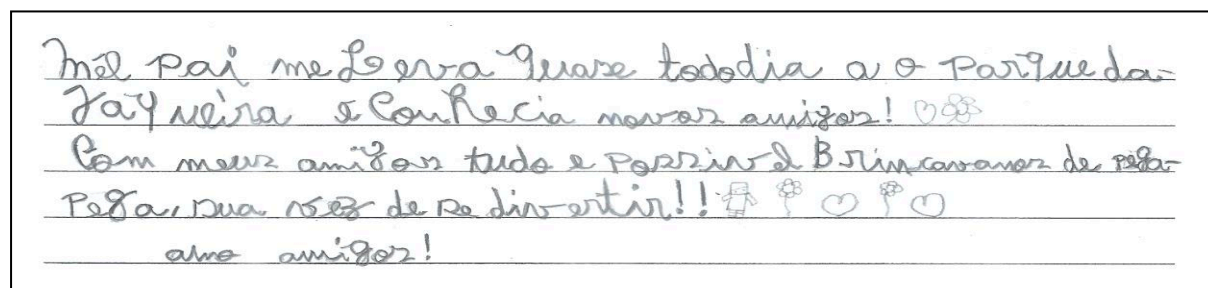 mel pai me Leva quase tododia a o Parque da-
Jaqueira e Conhecia novos amigos!
Com meus amigos tudo e Possivel Brincavamos de pega-
Pega, sua vez de se divertir!!
amo amigos!